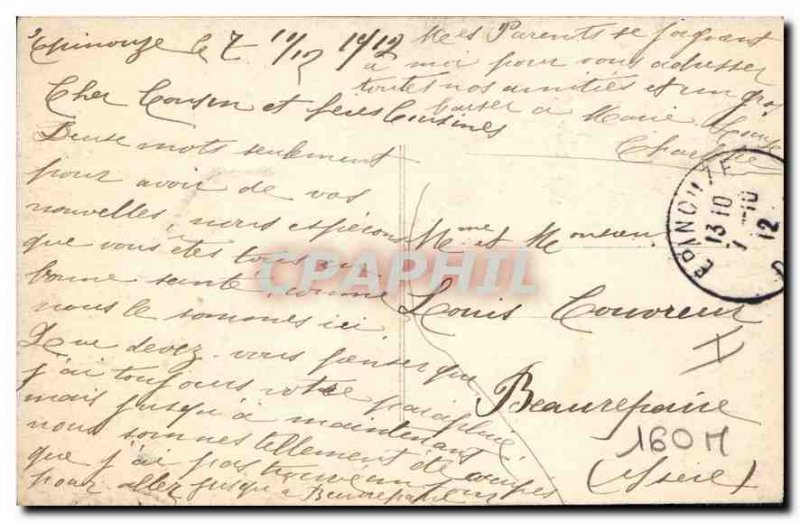 Epinouze le 7 10/12 1912
Cher Cousin et Cousines
Deux mots seulement
pour avoir de vos
nouvelles, nous espérons
que vous êtes tous en
bonne santé, comme
nous le sommes ici.
Que devez-vous penser que
j'ai toujours votre parapluie
mais jusqu'à maintenant
nous sommes tellement occupés
que j'ai pas trouvé un
pour aller jusqu'à Beaurepaire
Mes Parents se joignent
à moi pour vous adresser
toutes nos amitiés et un gros
baiser à Marie Louise
Mme et Monsieur
Louis Couvreur
Beaurepaire
(Isère)
EPINOUZE
13 10
7 -10
12
D
160 M
CPAPHIL